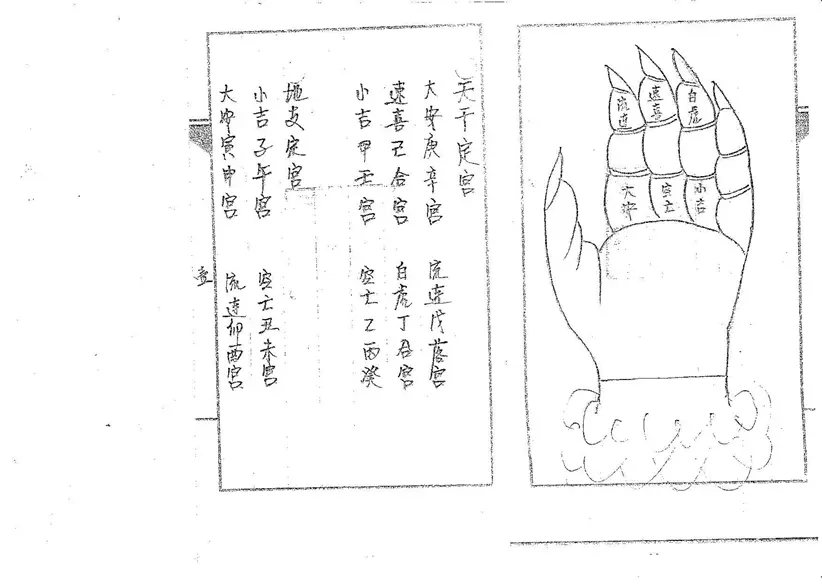 天干定宫
大安庚辛宫 流连戊落宫
速喜己合宫 白虎丁君宫
小吉甲壬宫 空亡乙丙癸
地支定宫
小吉子午宫 空亡丑未宫
大安寅申宫 流连卯酉宫
壹
流连
速喜
白虎
大安
空亡
小吉